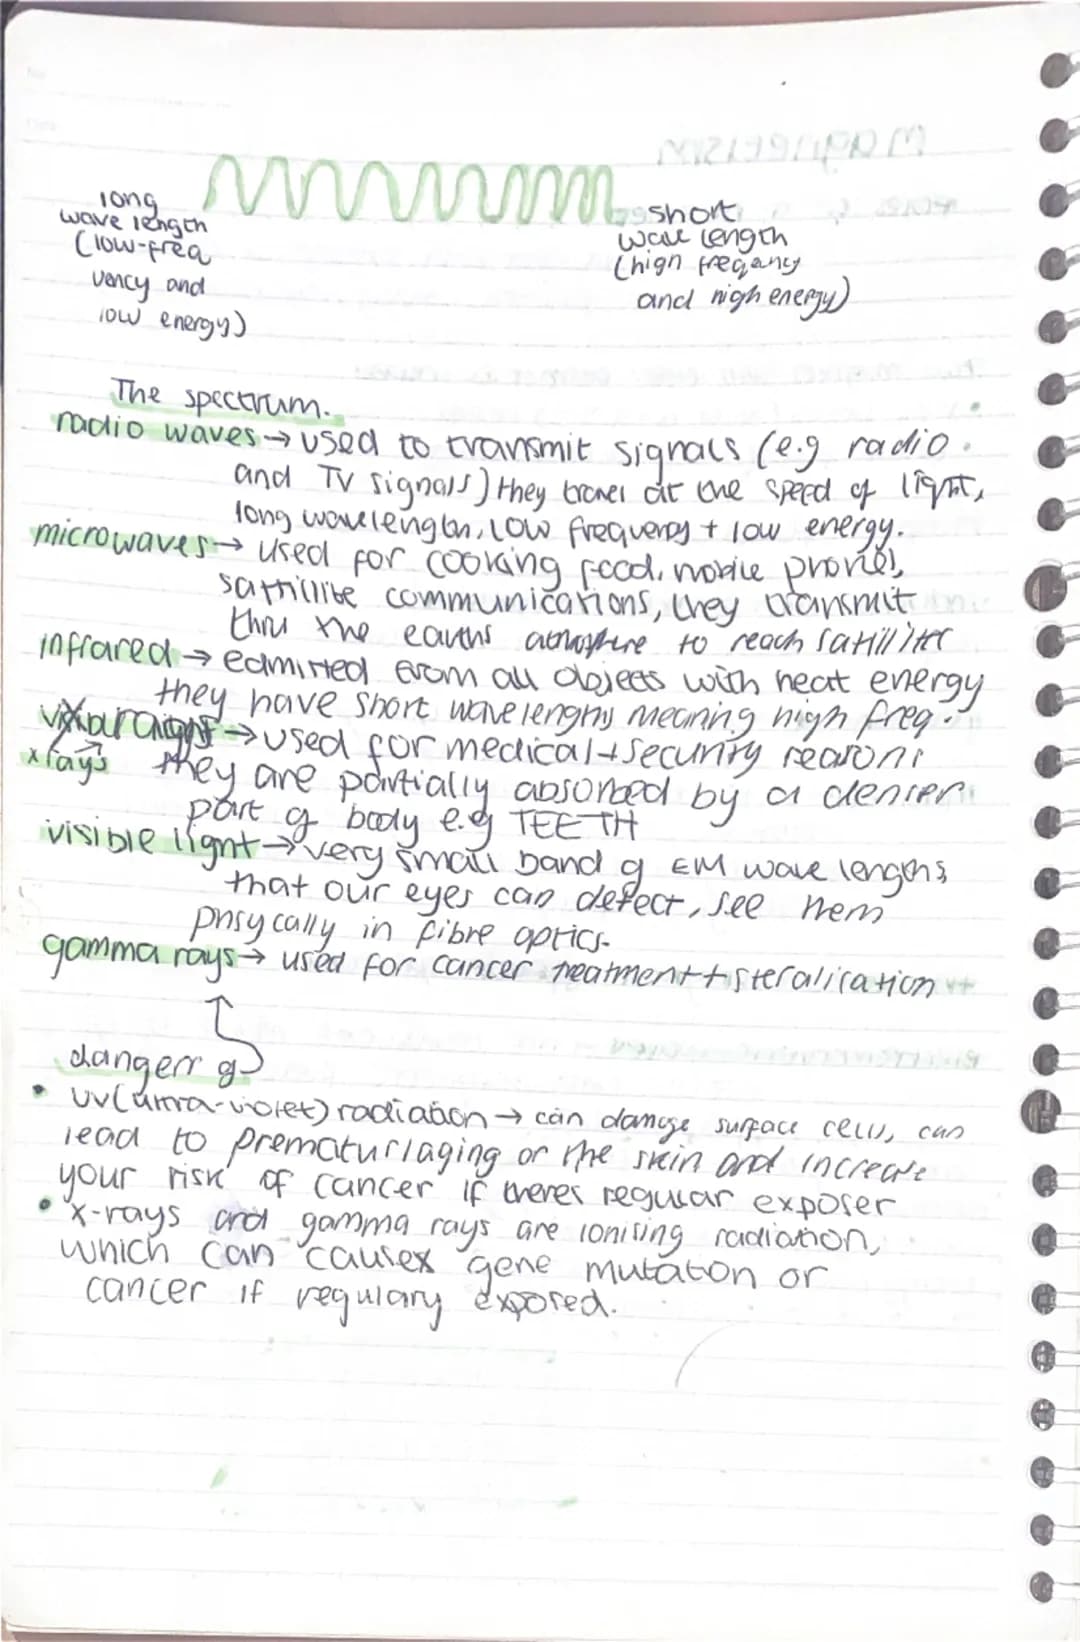 long
wave length
(low-freq
uency and
low energy)
short
wave length
(high freqancy
and high energy)
The spectrum.
radio waves → used to transmit signals (e.g radio
and TV signals) they travel at the speed of light,
long wavelength, low frequency + low energy.
microwaves → used for cooking food, mobile phones,
sattillite communications, they transmit
thru the earths atmosphere to reach satillites
infrared → edmitted from all objects with heat energy
they have short wavelengths meaning high freq.
x rays → used for medical + security reasons
they are partially absorbed by a denser
part of body e.g TEETH
visible light → very small band of EM wave lengths
that our eyes can detect, see them
phsycally in fibre optics.
gamma rays → used for cancer treatment + steralisation
dangerr of
• UV (ultra-violet) radiation → can damage surface cells, can
lead to prematur aging or the skin and increase
your risk of cancer if theres regular exposer
• x-rays and gamma rays are ionising radiation,
which can causex gene mutaton or
cancer if regulary exposed.
Magnetism